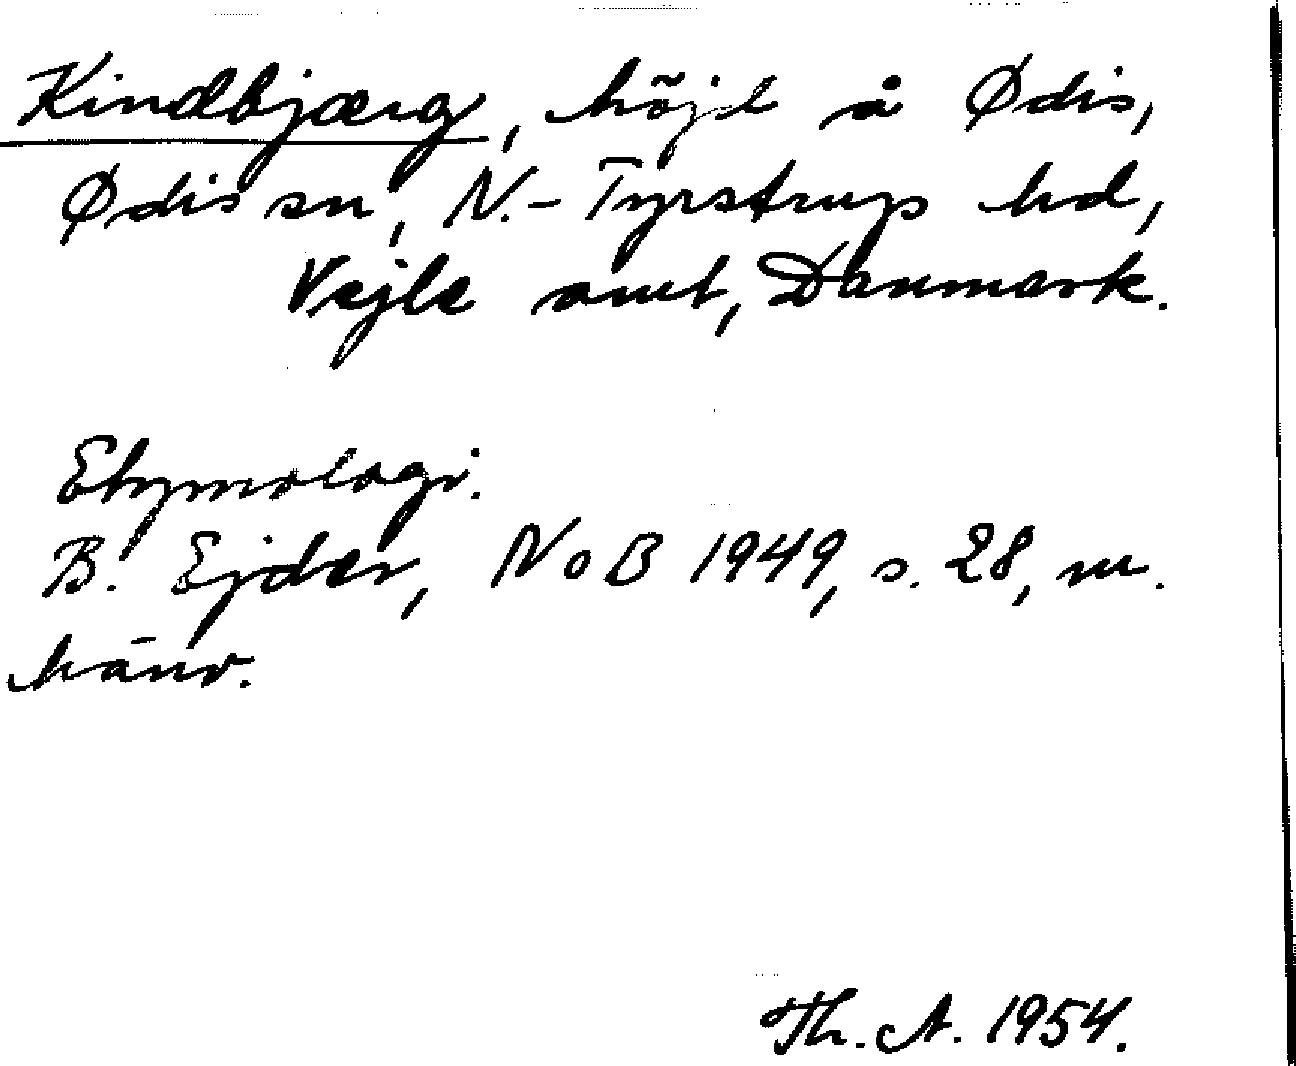 Kindbjærg, höjd å Ødis,
Ødis sn, N.-Tyrstrup hd,
Vejle amt, Danmark.
Etymologi.
B. Ejder, NoB 1949, s. 28, m.
hänv.
Th. A. 1954.